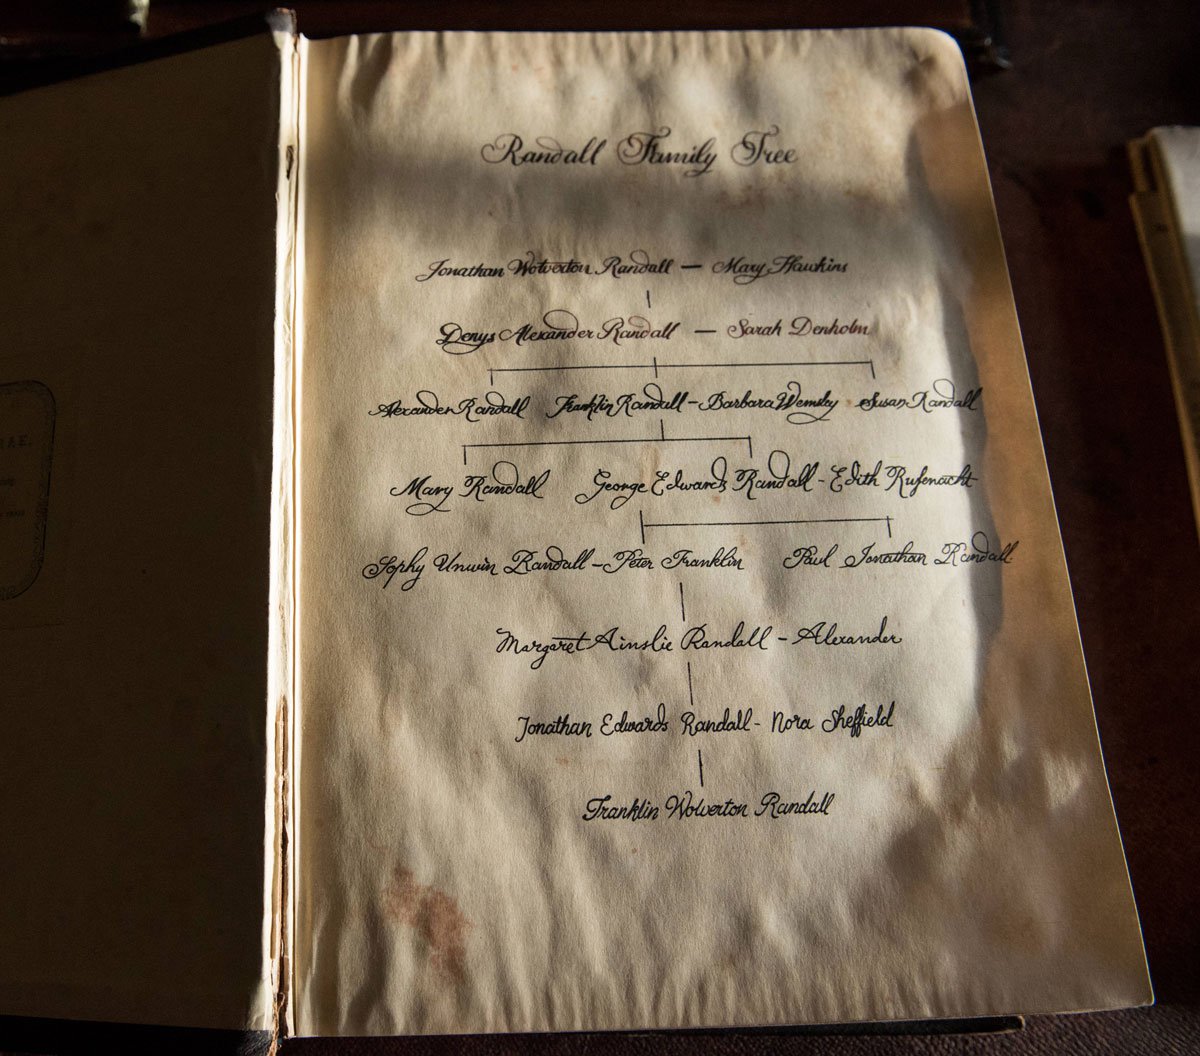 Randall Family Tree
Jonathan Wolverton Randall — Mary Hawkins
Denys Alexander Randall — Sarah Denholm
Alexander Randall Franklin Randall - Barbara Wemsley Susan Randall
Mary Randall George Edwards Randall - Edith Rufenacht
Sophy Unwin Randall - Peter Franklin Paul Jonathan Randall
Margaret Ainslie Randall - Alexander
Jonathan Edwards Randall - Nora Sheffield
Franklin Wolverton Randall